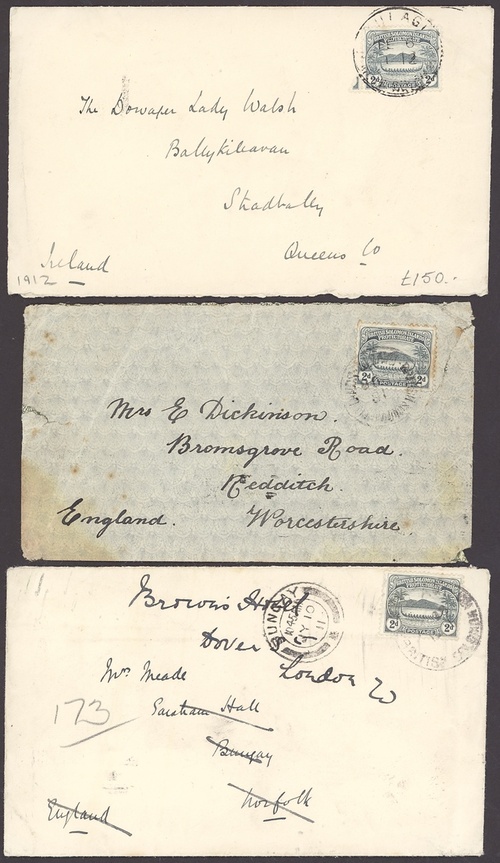 BRITISH SOLOMON ISLANDS
PROTECTORATE
2d POSTAGE 2d
12
The Dowager Lady Walsh
Ballykilcavan
Stradbally
Queens Co
Ireland
1912
£150.-
BRITISH SOLOMON ISLANDS
PROTECTORATE
2d POSTAGE 2d
Mrs E Dickinson.
Bromsgrove Road.
Redditch.
England. Worcestershire.
BRITISH SOLOMON ISLANDS
PROTECTORATE
2d POSTAGE 2d
BRITISH
BUNGAY
11
Brown's Hotel
Dover
London W
Mrs Meade
Earsham Hall
Bungay
Norfolk
England
173